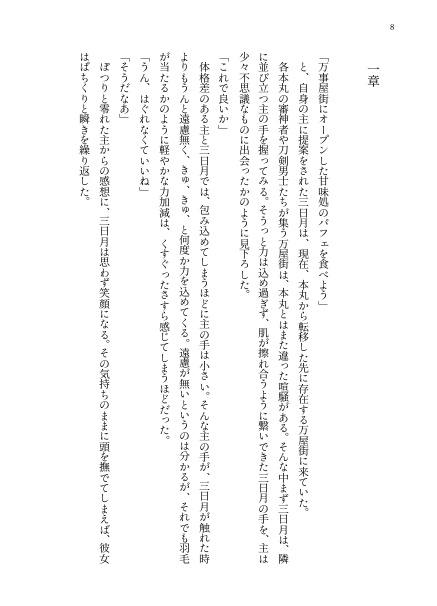 8
一章
「万事屋街にオープンした甘味処のパフェを食べよう」
と、自身の主に提案をされた三日月は、現在、本丸から転移した先に存在する万屋街に来ていた。
各本丸の審神者や刀剣男士たちが集う万屋街は、本丸とはまた違った喧騒がある。そんな中まず三日月は、隣
に並び立つ主の手を握ってみる。そうっと力は込め過ぎず、肌が擦れ合うように繋いできた三日月の手を、主は
少々不思議なものに出会ったかのように見下ろした。
「これで良いか」
体格差のある主と三日月では、包み込めてしまうほどに主の手は小さい。そんな主の手が、三日月が触れた時
よりもうんと遠慮無く、きゅ、きゅ、と何度か力を込めてくる。遠慮が無いというのは分かるが、それでも羽毛
が当たるかのように軽やかな力加減は、くすぐったさすら感じてしまうほどだった。
「うん、はぐれなくていいね」
「そうだなあ」
ぽつりと零れた主からの感想に、三日月は思わず笑顔になる。その気持ちのままに頭を撫でてしまえば、彼女
はぱちくりと瞬きを繰り返した。